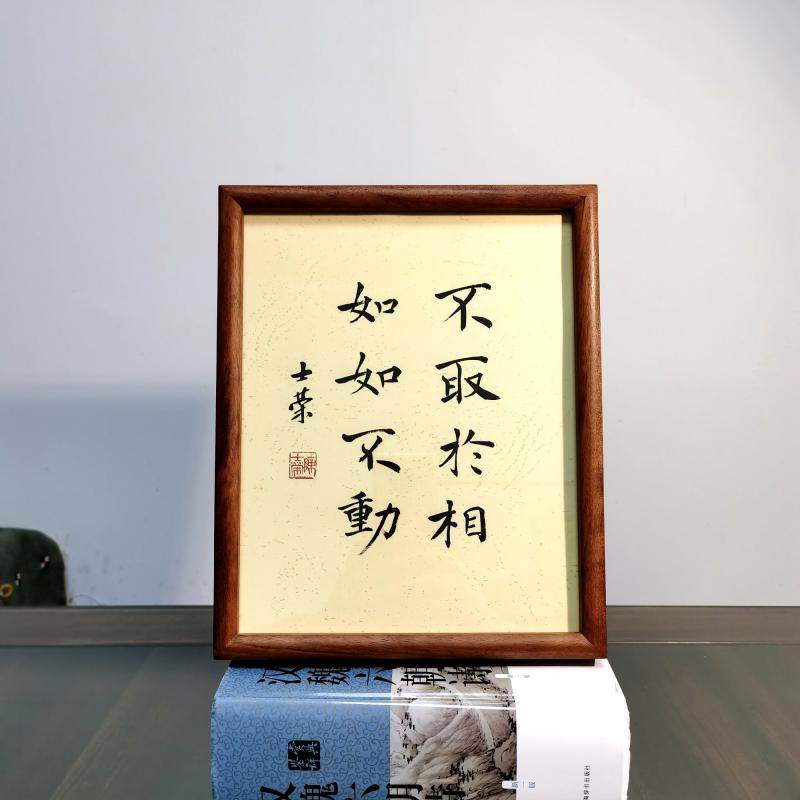 不取於相
如如不動
士荣
汉魏六朝